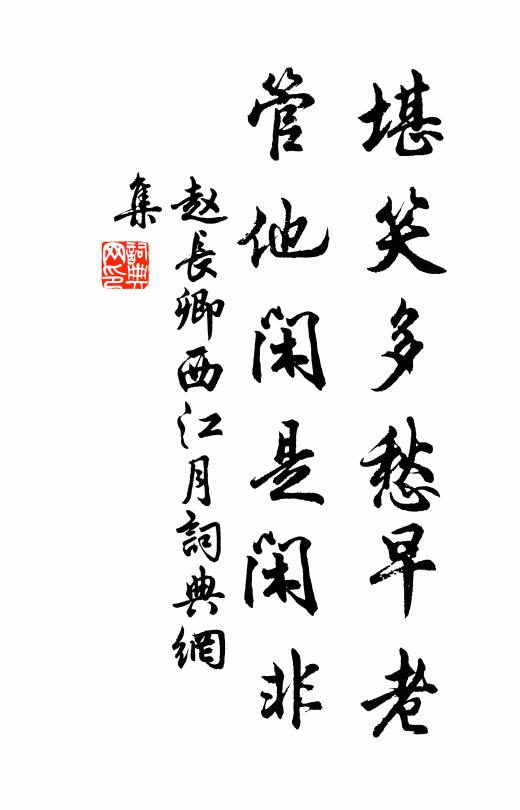 堪笑多愁早老
管他闲是闲非
赵長卿西江月詞典網
集
詞典
网印